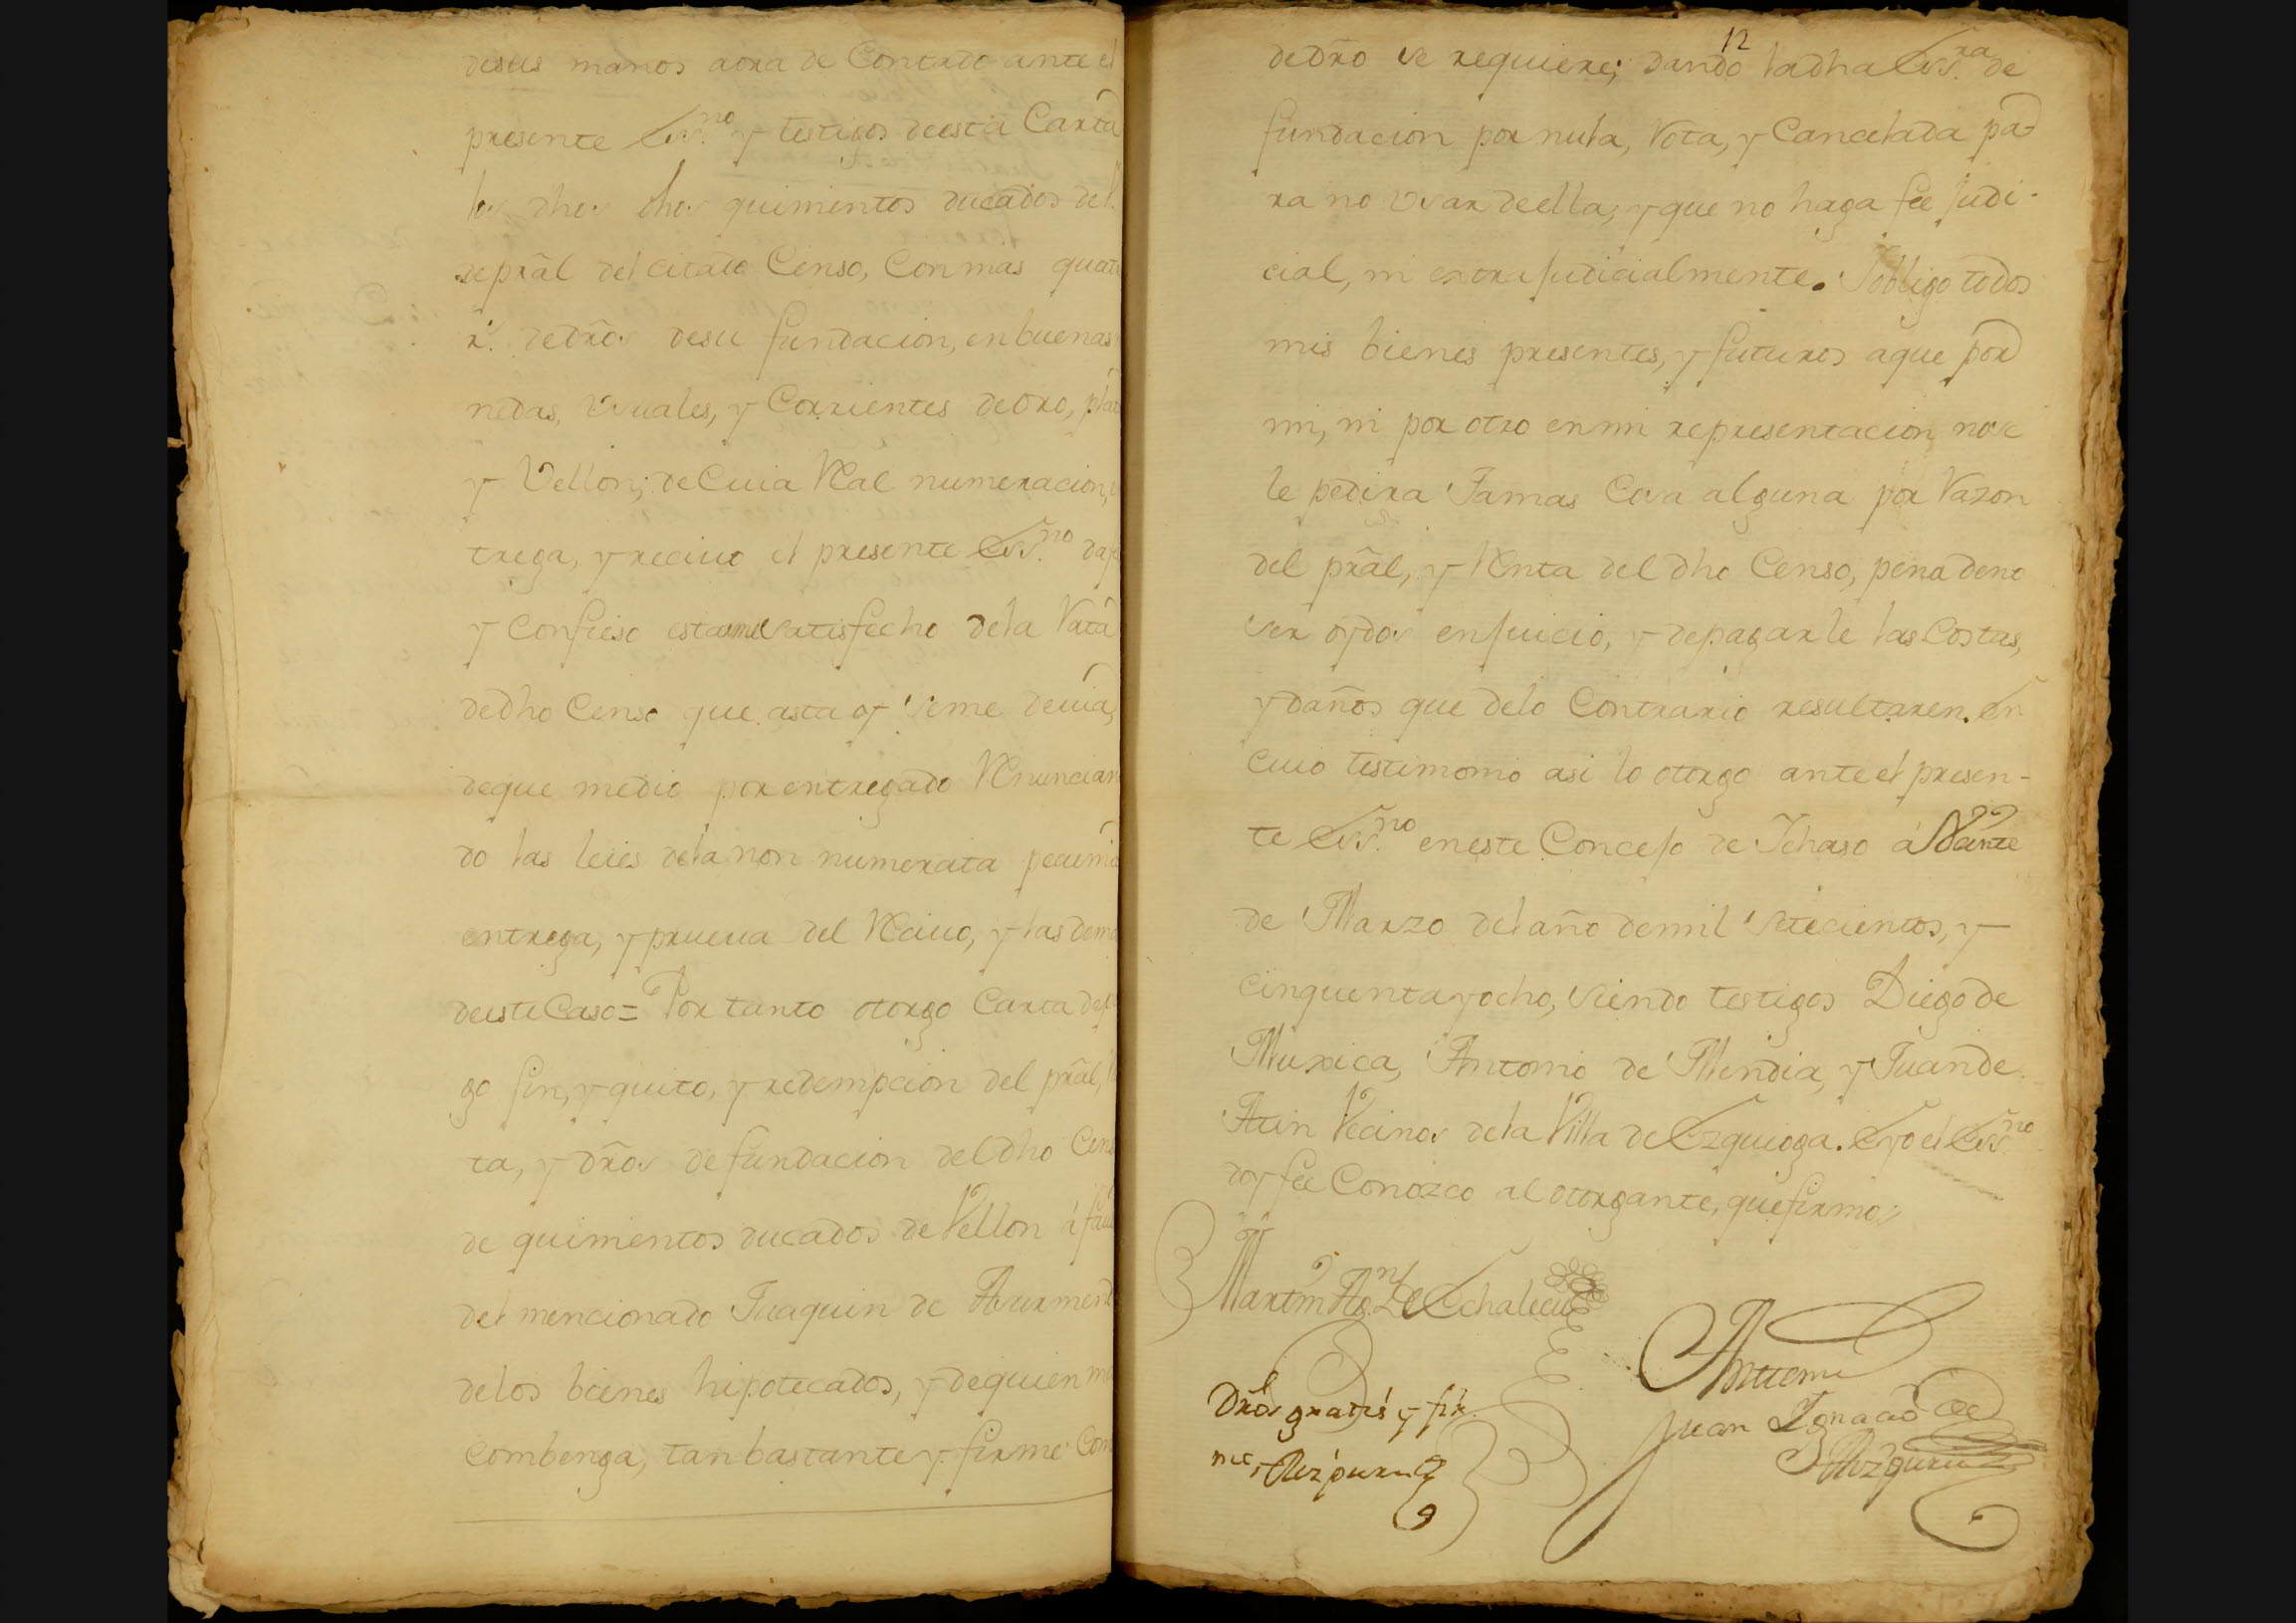 desus manos aora de Contado ante el
presente Ess.no y testigos deesta Carta
los dhos dhos quinientos ducados de V.
de prãl del citado Censo, Con mas quat
r.s dedrõs desu fundacion, en buenas
nedas, Usuales, y Corrientes de Oro, plat
y Vellon; de Cuia Real numeracion, e
trega, y reciuo el presente Ess.no da fe
y Confieso estarme satisfecho dela Rata
dedho Censo que asta oy seme deuia,
deque medio por entregado Renuncian
do las leies dela non numerata pecunia
entrega, y prueua del Reciuo, y las dema
deeste Caso= Por tanto otorgo Carta de p
go fin, y quito, y redempcion del prãl,
ta, y drõs de fundacion del dho Cens
de quinientos ducados de Vellon á fau
del mencionado Juaquin de Aburment
delos bienes hipotecados, y dequien mas
Combenga, tan bastante y firme Com
12
dedrõ se requiere; dando la dha Ess.ra de
fundacion por nula, Rota, y Cancelada pa-
ra no usar deella; y que no haga fee judi-
cial, ni extrajudicialmente. Jobligo todos
mis bienes presentes, y futuros aque por
mi, ni por otro en mi representacion nose
le pedira Jamas Cosa alguna por Razon
del prãl, y Renta del dho Censo, pena deno
ser oydos enjuicio, y depagarle las Costas,
y daños que delo Contrario resultaren. En
cuio testimonio asi lo otorgo ante el presen-
te Ess.no en este Concejo de Ichaso á Veinte
de Marzo del año demil setecientos, y
cinquenta y ocho, siendo testigos Diego de
Muxica, Antonio de Mendia, y Juan de
Atin Vecinos dela Villa de Ezquioga. E yo el Ess.no
doy fee Conozco al otorgante, que firmo.
Martin Ag.n de Echalecu
Antemi
Juan Ignacio de
Aizpuru
Drõs gratis y fir
me, Aizpuru